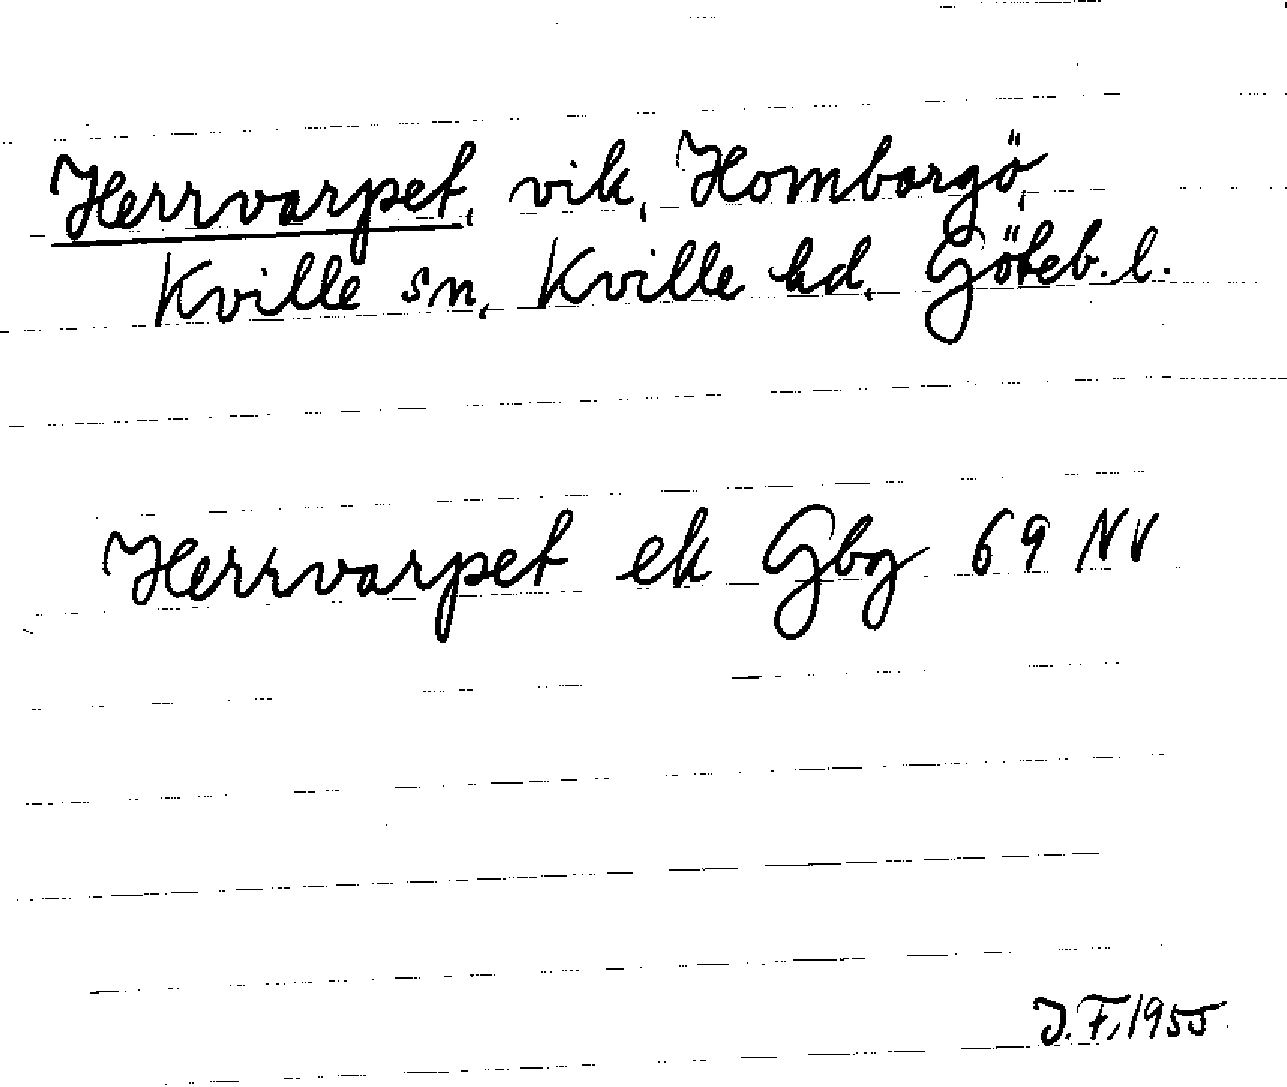 Herrvarpet, vik, Homborgö,
Kville sn, Kville hd, Göteb. l.
Herrvarpet ek Gbg 69 NV
J.F. 1955